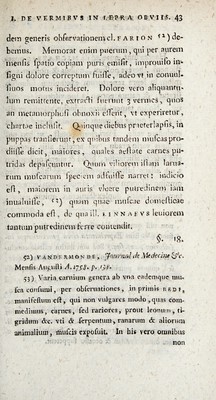 I. DE VERMIBVS IN LEPRA OBVIIS. 43
dem generis observationem cl. FARION ⁵²) de-
bemus. Memorat enim puerum, qui per aurem
mensis spatio copiam puris emisit, improuiso in-
signi dolore correptum fuisse, adeo vt in conuul-
siuos motus incideret. Dolore vero aliquantu-
lum remittente, extracti fuerunt 3 vermes, quos
an metamorphosi obnoxii essent, vt experiretur,
chartae inclusit. Quinque diebus praeterlapsis, in
puppas transierunt, ex quibus tandem muscas pro-
diisse dicit, maiores, quales aestate carnes pu-
tridas depascuntur. Quum vtiliorem istam larua-
rum muscarum speciem adfuisse narret: indicio
est, maiorem in auris vlcere putredinem iam
inualuisse, ⁵³) quum quae muscae domesticae
commoda est, de qua ill. LINNAEVS leuiorem
tantum putredinem ferre contendit.
§. 18.
52) VANDERMONDE, Journal de Medecine &c.
Mensis Augusti A. 1758. p. 138.
53) Varia carnium genera ab vna eademque mu-
sca consumi, per observationes, in primis REDI,
manifestum est, qui non vulgares modo, quas com-
medimus, carnes, sed rariores, prout leonum, ti-
gridum &c. vti & serpentum, ranarum & aliorum
animalium, muscis exposuit. In his vero omnibus
non